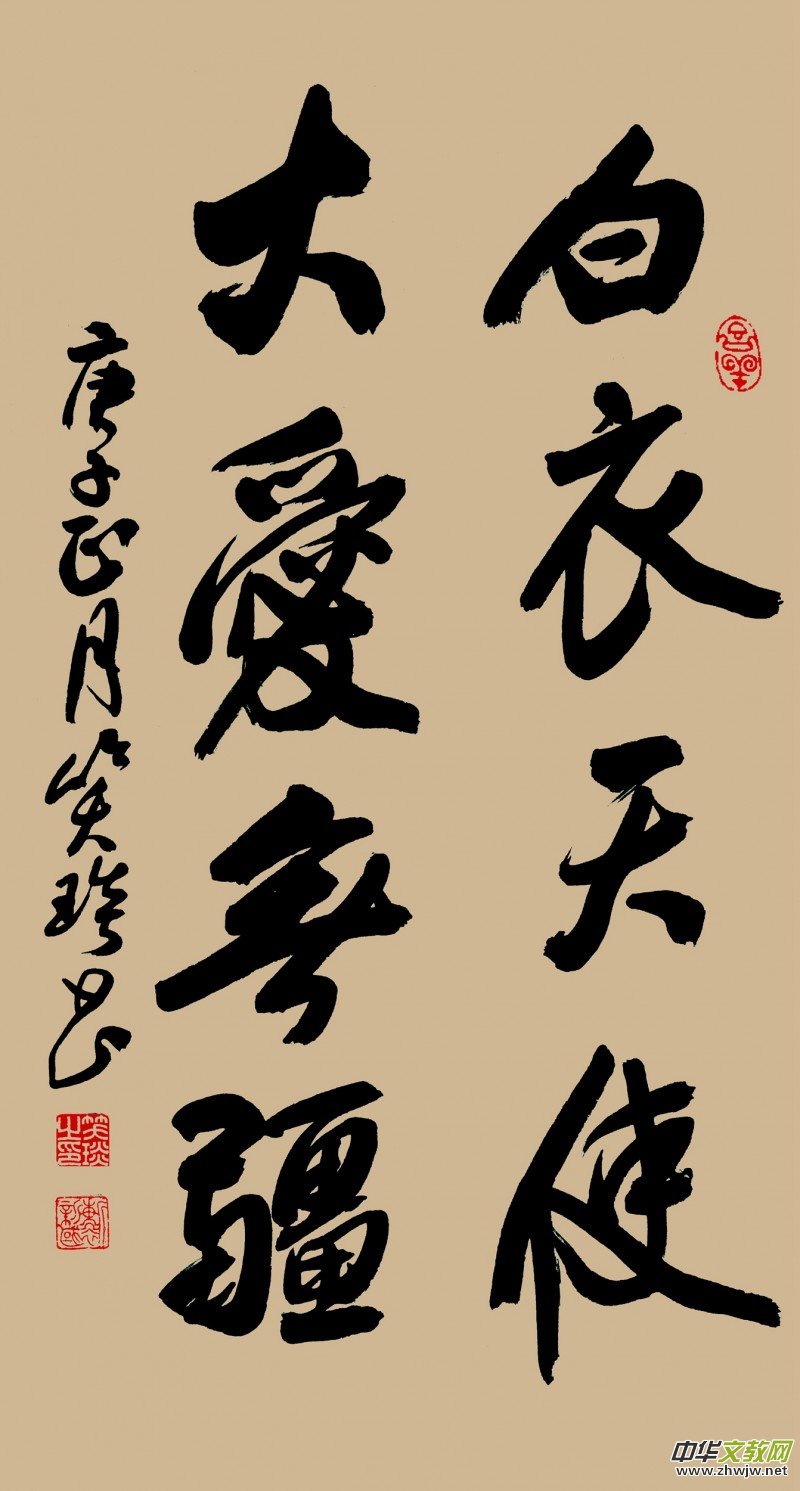 白衣天使
大愛無疆
庚子正月笑琰
笑琰之印
中华文教网
www.zhwjw.net